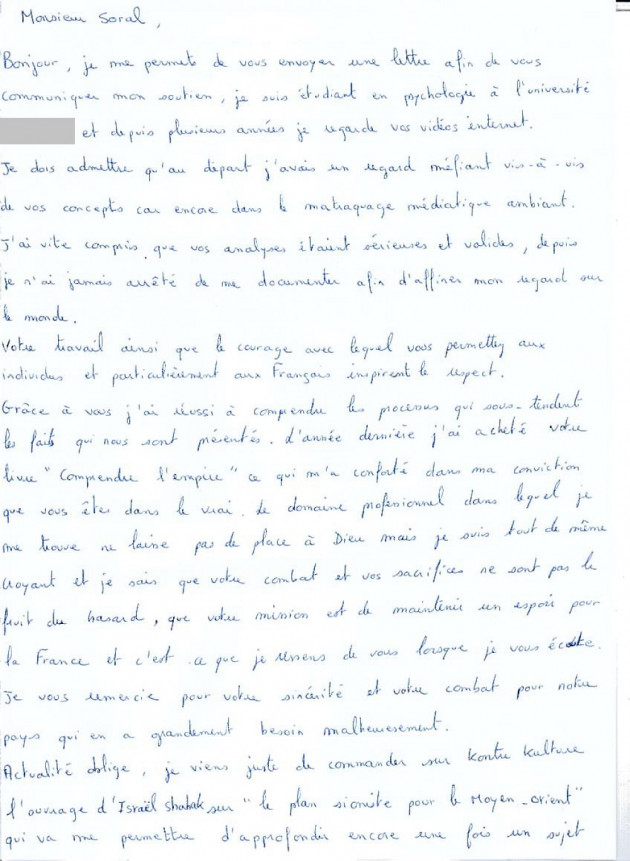 Monsieur Soral,
Bonjour, je me permets de vous envoyer une lettre afin de vous
communiquer mon soutien, je suis étudiant en psychologie à l'université
et depuis plusieurs années je regarde vos vidéos internet.
Je dois admettre qu'au départ j'avais un regard méfiant vis-à-vis
de vos concepts car encore dans le matraquage médiatique ambiant.
J'ai vite compris que vos analyses étaient sérieuses et valides, depuis
je n'ai jamais arrêté de me documenter afin d'affiner mon regard sur
le monde.
Votre travail ainsi que le courage avec lequel vous permettez aux
individus et particulièrement aux Français inspirent le respect.
Grâce à vous j'ai réussi à comprendre les processus qui sous-tendent
les faits qui nous sont présentés. L'année dernière j'ai acheté votre
livre "Comprendre l'empire" ce qui m'a conforté dans ma conviction
que vous êtes dans le vrai. Le domaine professionnel dans lequel je
me trouve ne laisse pas de place à Dieu mais je suis tout de même
croyant et je sais que votre combat et vos sacrifices ne sont pas le
fruit du hasard, que votre mission est de maintenir un espoir pour
la France et c'est ce que je ressens de vous lorsque je vous écoute.
Je vous remercie pour votre sincérité et votre combat pour notre
pays qui en a grandement besoin malheureusement.
Actualité oblige, je viens juste de commander sur kontre kulture
l'ouvrage d'Israël shahak sur "le plan sioniste pour le Moyen-orient"
qui va me permettre d'approfondir encore une fois un sujet